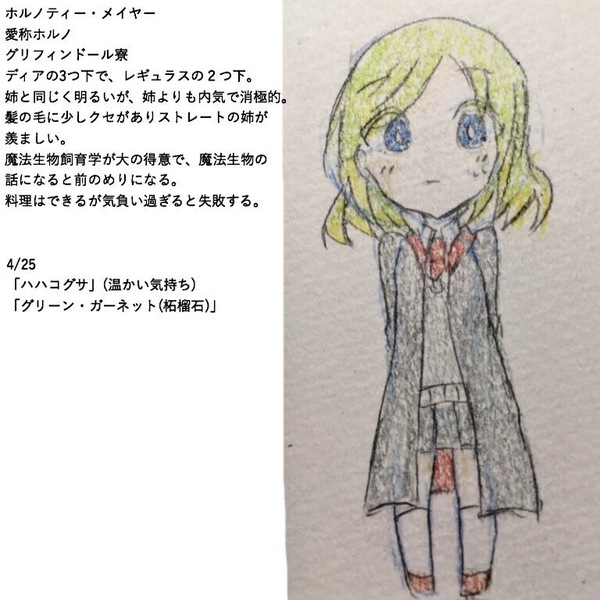 ホルノティー・メイヤー
愛称ホルノ
グリフィンドール寮
ディアの3つ下で、レギュラスの２つ下。
姉と同じく明るいが、姉よりも内気で消極的。
髪の毛に少しクセがありストレートの姉が
羨ましい。
魔法生物飼育学が大の得意で、魔法生物の
話になると前のめりになる。
料理はできるが気負い過ぎると失敗する。
4/25
「ハハコグサ」(温かい気持ち)
「グリーン・ガーネット(柘榴石)」